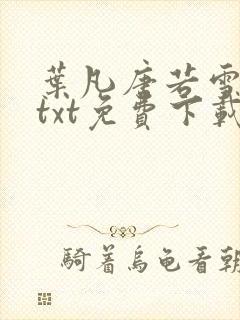 葉凡唐若雪
txt免費下載
騎着烏龜看朝